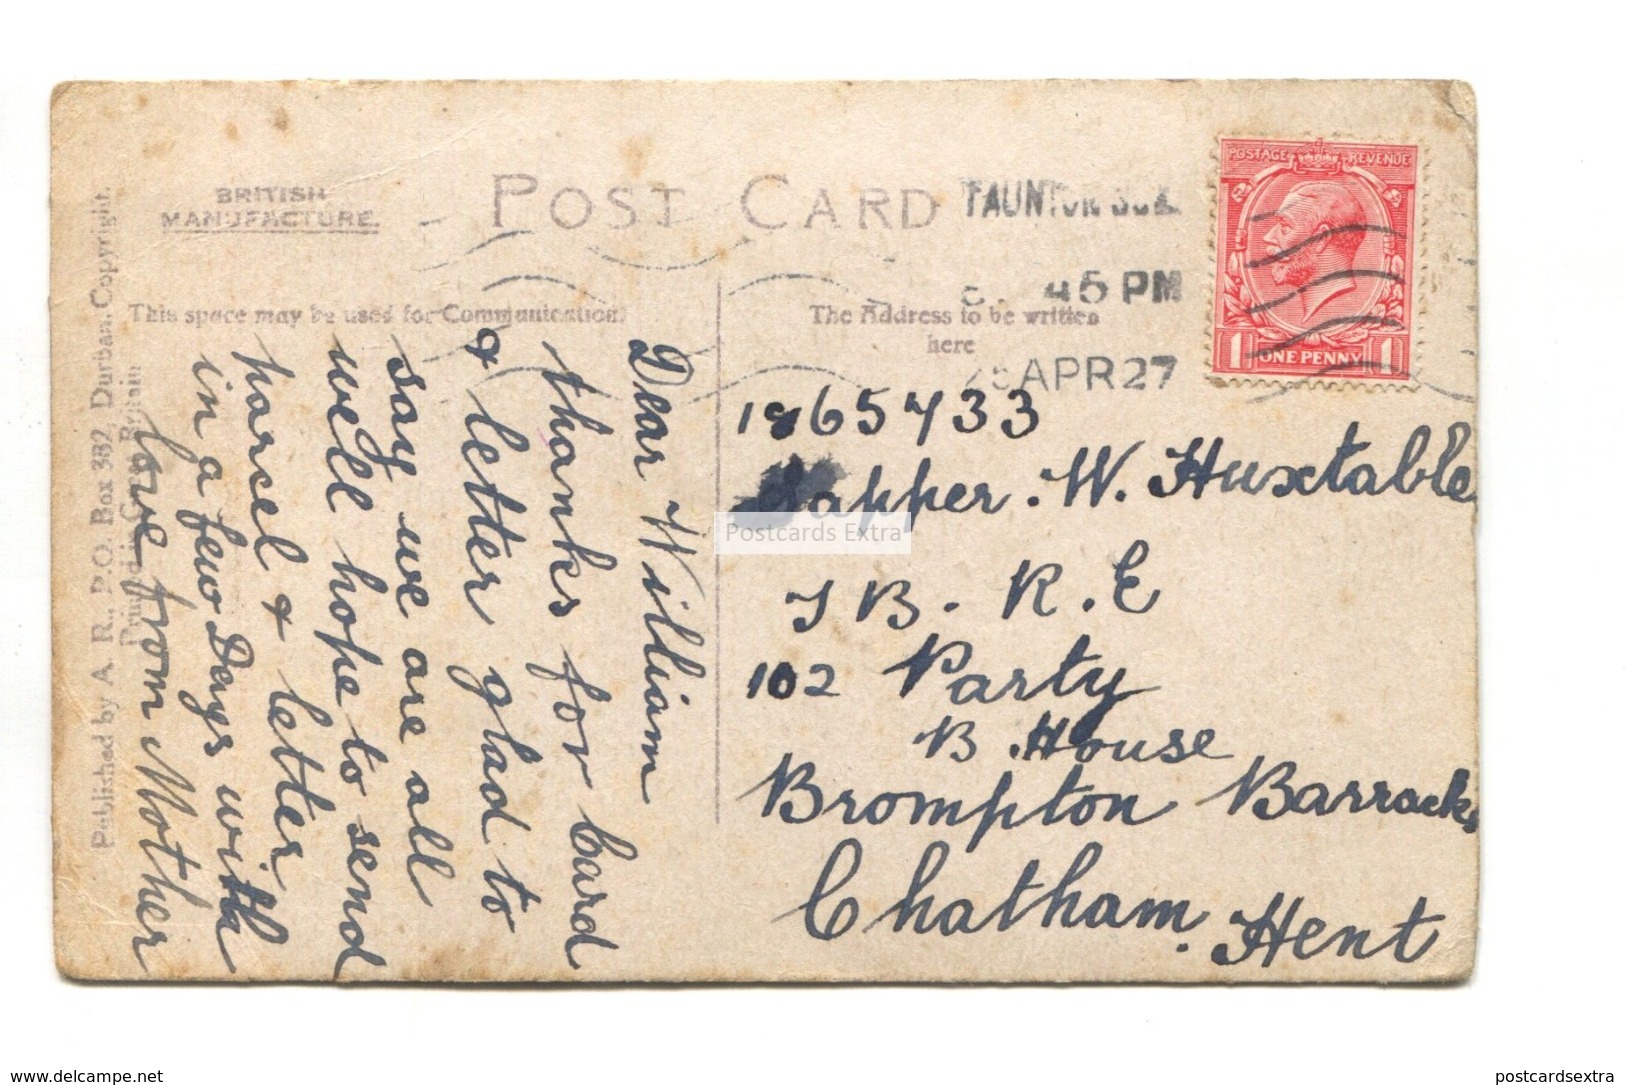 BRITISH
MANUFACTURE.
POST CARD
TAUNTON
45 PM
APR 27
POSTAGE REVENUE
1 ONE PENNY 1
This space may be used for Communication.
The Address to be written
here
Published by A. R., P.O. Box 382, Durban, Copyright.
Printed in Great Britain
Dear William
thanks for Card
& letter glad to
say we are all
well hope to send
parcel & letter
in a few Days with
love from Mother
1865733
Sapper. W. Huxtable
B. R. E
102 Party
B. House
Brompton Barracks
Chatham. Kent
Postcards Extra
www.delcampe.net
postcardsextra